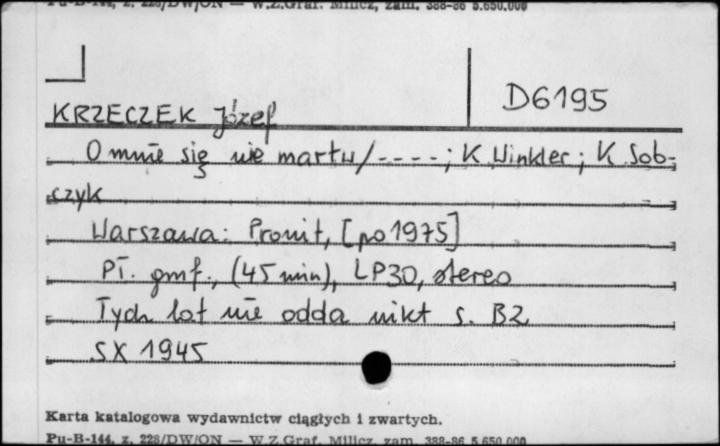 Pu-B-144, z. 228/DW/ON — W.Z.Graf. Milicz, zam. 388-86 5.650.000
D6195
KRZECZEK Józef
O mnie się nie martw/----; K Winkler; K Sob-
czyk
Warszawa: Pronit, [po 1975]
Pł. gmf., (45 min), LP30, stereo
Tych lat nie odda nikt s. B2
SX 1945
Karta katalogowa wydawnictw ciągłych i zwartych.
Pu-B-144, z. 228/DW/ON — W.Z.Graf. Milicz, zam. 388-86 5.650.000